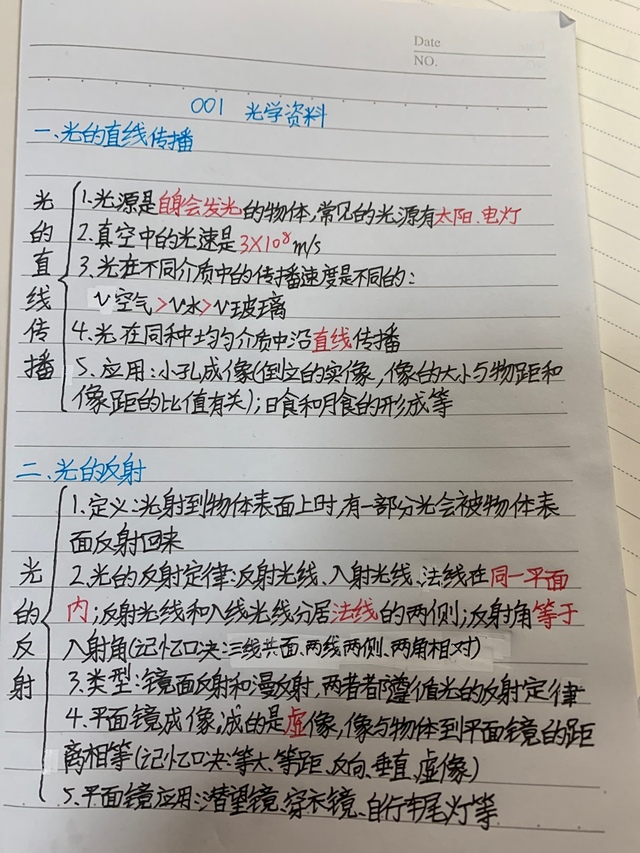 Date
NO.
001 光学资料
一、光的直线传播
光的直线传播
1.光源是自身会发光的物体,常见的光源有太阳、电灯
2.真空中的光速是3×10⁸m/s
3.光在不同介质中的传播速度是不同的:
v空气>v水>v玻璃
4.光在同种均匀介质中沿直线传播
5.应用:小孔成像(倒立的实像,像的大小与物距和
像距的比值有关);日食和月食的形成等
二、光的反射
光的反射
1.定义:光射到物体表面上时,有一部分光会被物体表
面反射回来
2.光的反射定律:反射光线、入射光线、法线在同一平面
内;反射光线和入线光线分居法线的两侧;反射角等于
入射角(记忆口决:三线共面、两线两侧、两角相对)
3.类型:镜面反射和漫反射,两者都遵循光的反射定律
4.平面镜成像,成的是虚像,像与物体到平面镜的距
离相等(记忆口决:等大、等距、反向、垂直、虚像)
5.平面镜应用:潜望镜、穿衣镜、自行车尾灯等